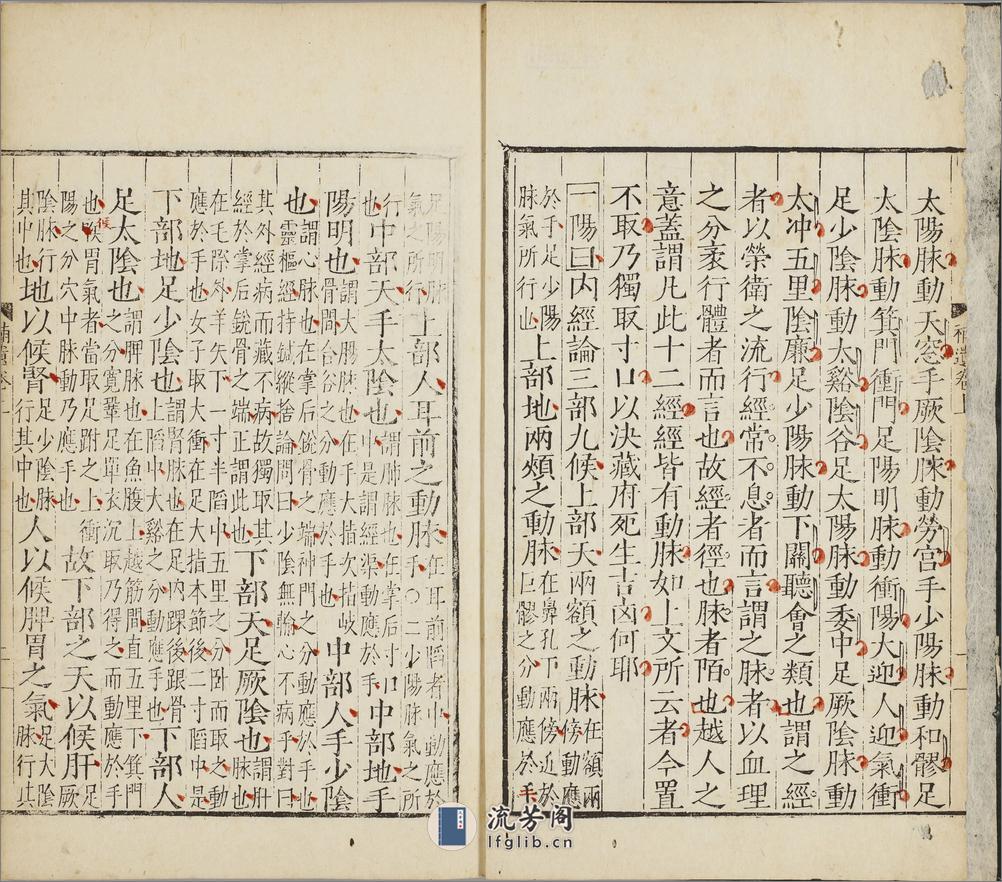 太陽脉動天窓手厥陰脉動勞宮手少陽脉動和髎足
太陰脉動箕門衝門足陽明脉動衝陽大迎人迎氣衝
足少陰脉動太谿陰谷足太陽脉動委中足厥陰脉動
太冲五里陰廉足少陽脉動下關聽會之類也謂之經
者以榮衛之流行經常不息者而言謂之脉者以血理
之分衺行體者而言也故經者徑也脉者陌也越人之
意蓋謂凡此十二經經皆有動脉如上文所云者今置
不取乃獨取寸口以決藏府死生吉凶何耶
一陽曰内經論三部九候上部天兩額之動脉在額兩傍動應
於手足少陽脉氣所行也上部地兩頰之動脉在鼻孔下兩傍近於巨髎之分動應於手
足陽明脉氣之所行上部人耳前之動脉在耳前陷者中動應於手〇二少陽脉氣之所
行也中部天手太陰也謂肺脉也在掌后寸口中是謂經渠動應於手中部地手
陽明也謂大腸脉也在手大指次指岐骨間合谷之分動應於手也中部人手少陰
也謂心脉也在掌后銳骨之端神門之分動應於手也靈樞經持鍼縱捨論問曰少陰無腧心不病乎對曰
其外經病而藏不病故獨取其經於掌后銳骨之端正謂此也下部天足厥陰也謂肝脉也
在毛際外羊矢下一寸半陷中五里之分卧而取之動應於手也女子取大衝在足大指本節後二寸陷中是
下部地足少陰也謂腎脉也在足内踝後跟骨上陷中大谿之分動應手也下部人
足太陰也謂脾脉也在魚腹上越筋間直五里下箕門之分寬鞏足單衣沉取乃得之而動應於手
也候胃氣者當取足跗之上衝陽之分穴中脉動乃應手也故下部之天以候肝足厥
陰脉行其中也地以候腎足少陰脉行其中也人以候脾胃之氣足大陰脉行其
補遺卷上
一
流芳阁
lfglib.cn